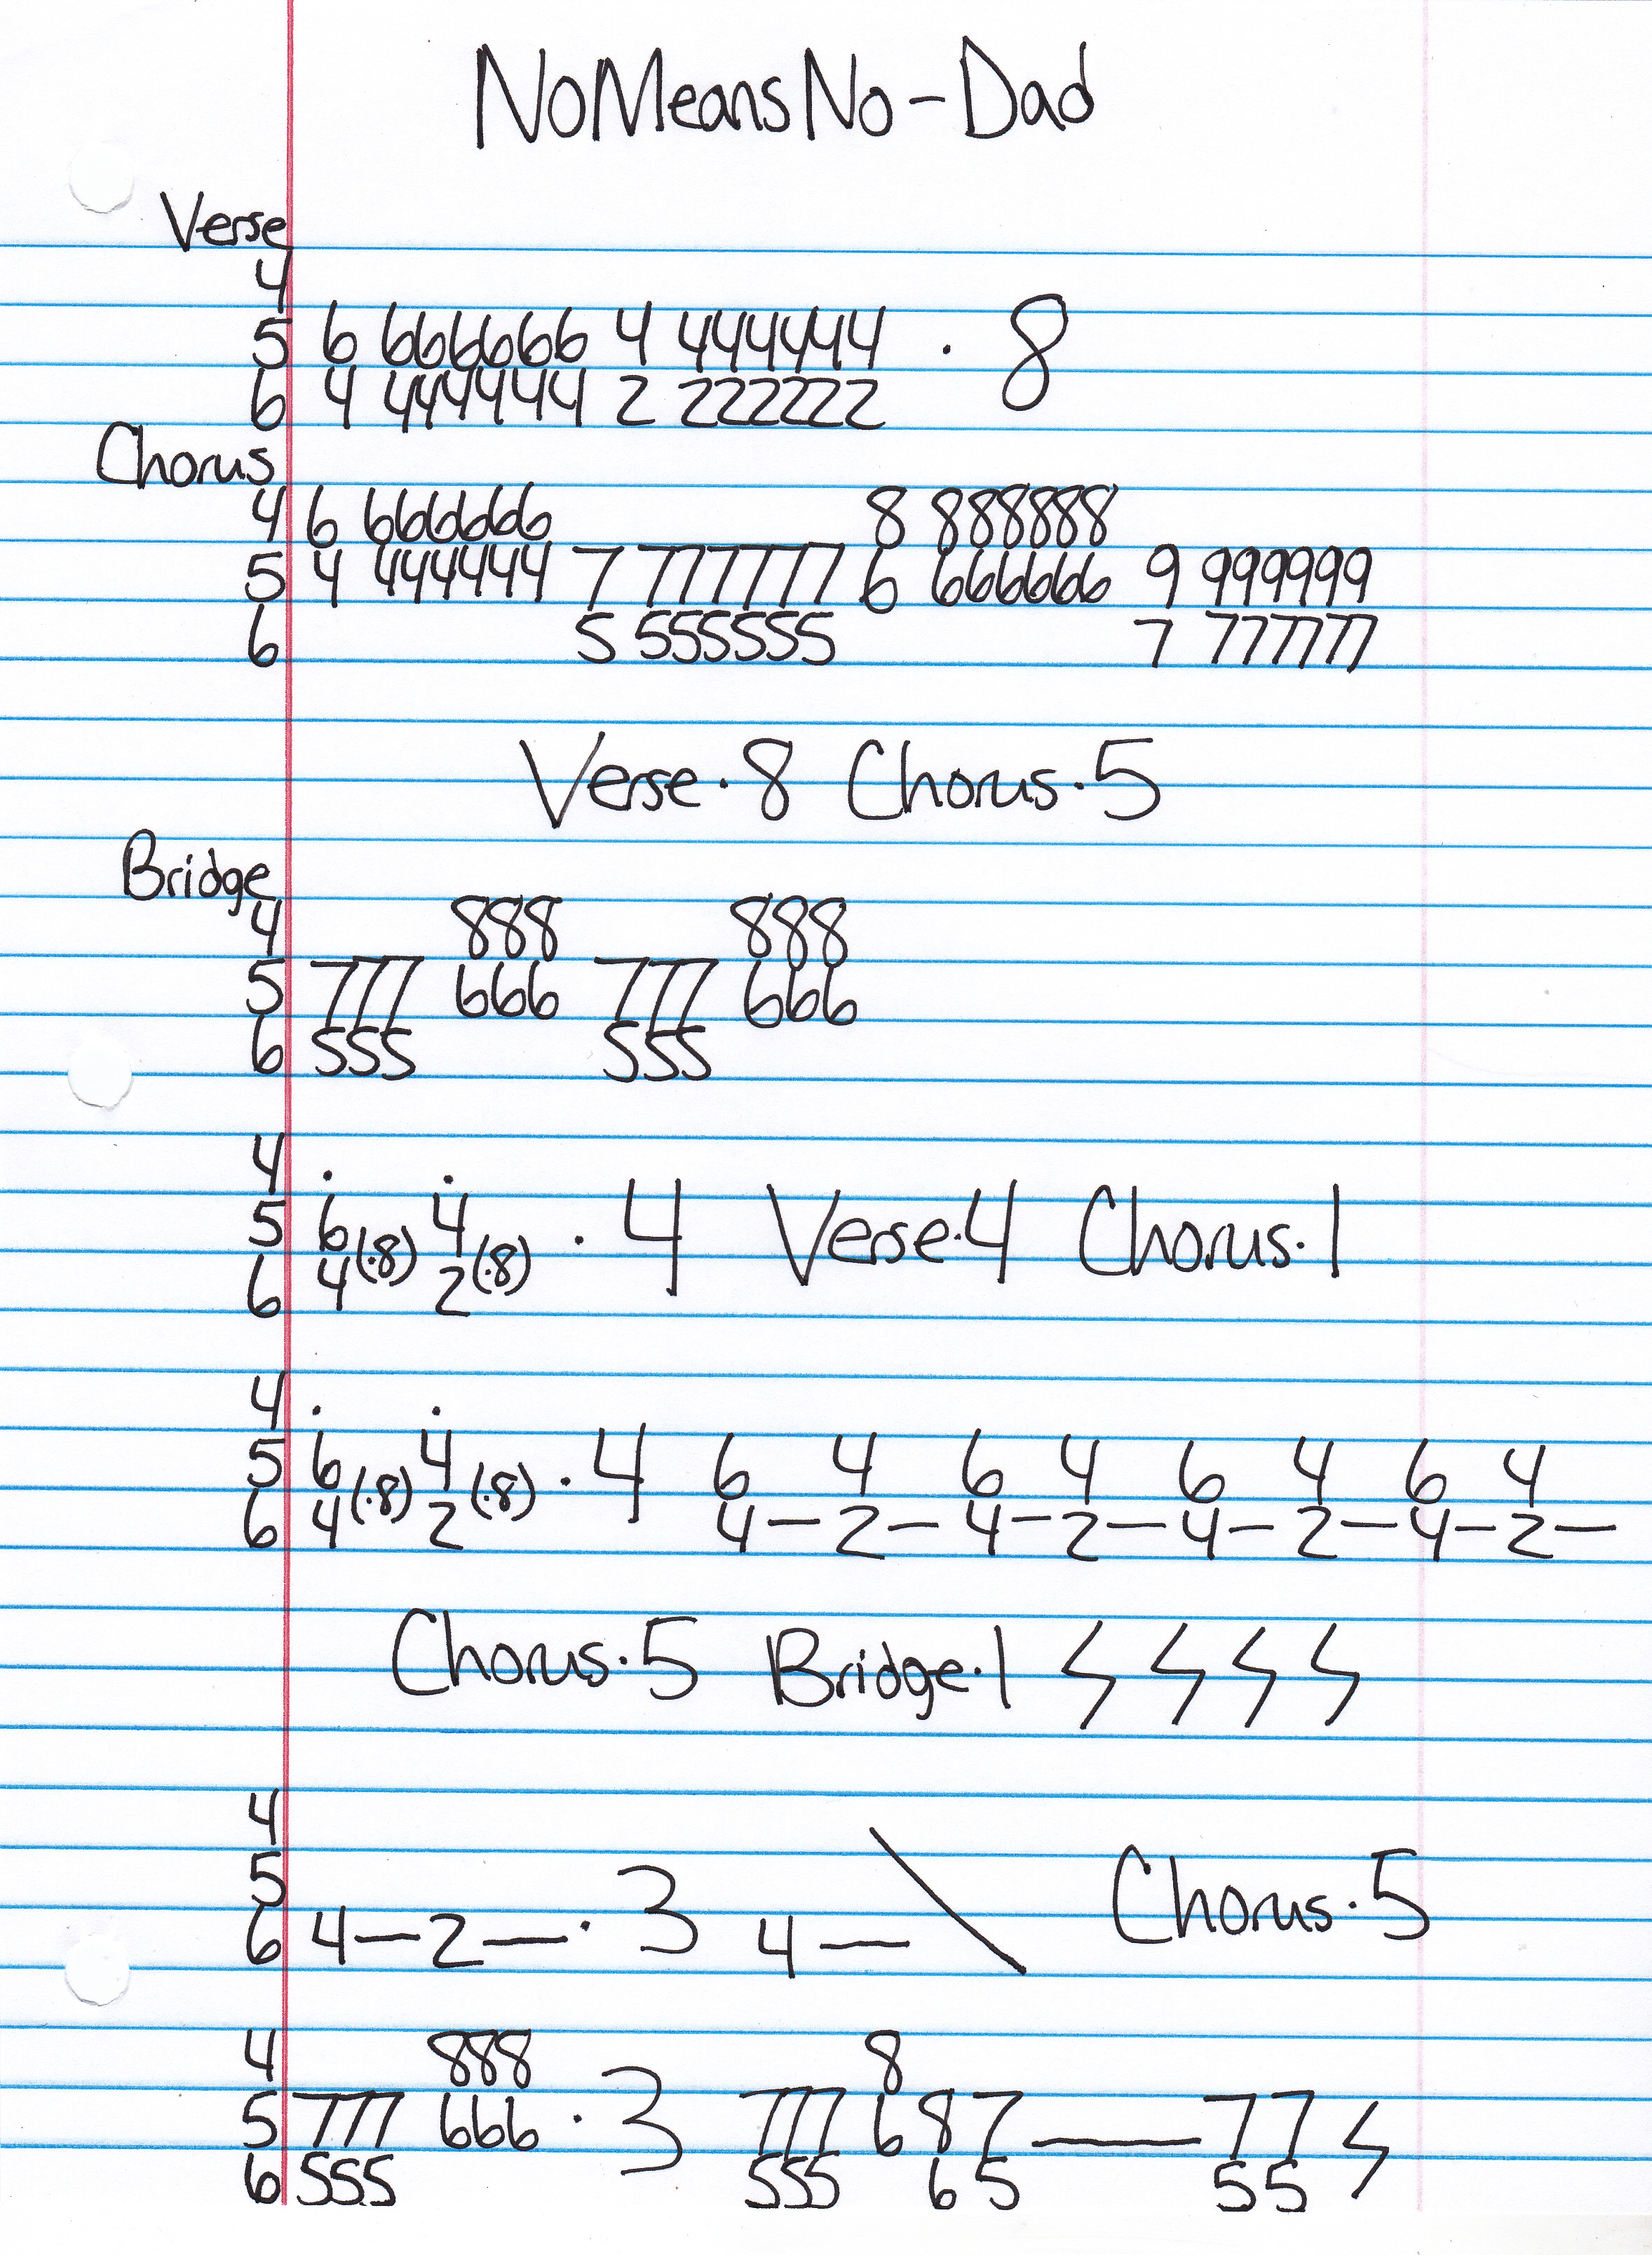 NoMeansNo - Dad
Verse
4
5 6 666666 4 444444 · 8
6 4 444444 2 222222
Chorus
4 6 666666 8 888888
5 4 444444 7 777777 6 666666 9 999999
6 5 555555 7 777777
Verse·8 Chorus·5
Bridge
4 888 888
5 777 666 777 666
6 555 555
4 . .
5 6(·8) 4(·8) · 4 Verse·4 Chorus·1
6 4 2
4 . .
5 6(·8) 4(·8) · 4 6 4 6 4 6 4 6 4
6 4 2 4 — 2 — 4 — 2 — 4 — 2 — 4 — 2 —
Chorus·5 Bridge·1
4
5 Chorus·5
6 4 — 2 — · 3 4 — \
4 888 8
5 777 666 · 3 777 6 8 7 — 7 7
6 555 555 6 5 5 5